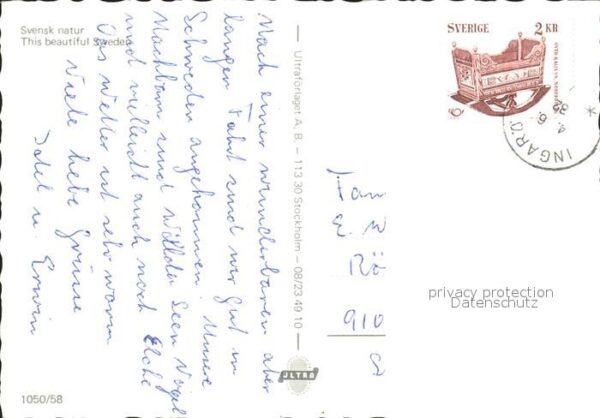 Svensk natur
This beautiful Sweden
Nach einer wunderbaren aber
langen Fahrt sind wir gut in
Schweden angekommen. Unsere
Nachbarn sind Wälder Seen Vögel
und vielleicht auch noch Elche
Das Wetter ist sehr warm
Viele liebe Grüsse
u. Erwin
1050/58
Ultraförlaget A. B. – 113 30 Stockholm – 08/23 49 10
ULTRA
SVERIGE 2 KR
INGARÖ
Fam
E. W
Rö
910
privacy protection
Datenschutz